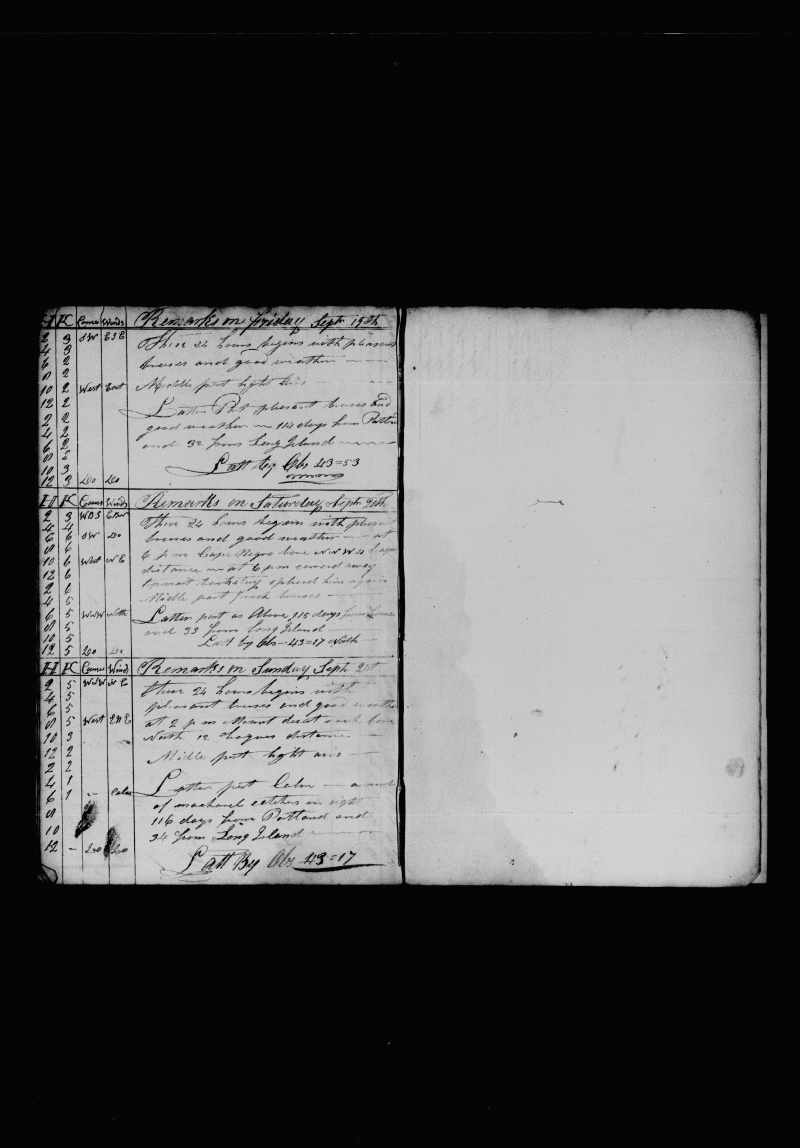 H K Course Winds Remarks on Friday Septr 19th
2 3 SW ESE These 24 hours begins with pleasant
4 3
6 2 breeses and good weather
8 2
10 2 West East Middle part light airs
12 2
2 2 Latter Part plesant breeses and
4 2 good weather 114 days from Portland
6 2 and 32 from Long Island
8 2
10 3 Latt by Obs 43=53
12 3 Do Do
H K Course Winds Remarks on Saturday Septr 20th
2 3 WBS
4 4 These 24 hours begins with plesant
6 6 SW Do breeses and good weather at
8 6 6 p m Cape Negro bore N N W 4 leagues
10 6 West N E
12 6 distance at 6 pm carried away
2 6 formast backstay spliced him again
4 5 Middle part fresh breeses
6 5 WNW North Latter part as Above 115 days from
8 5 and 33 from Long Island
10 5
12 5 Do Do Lat by Obs 43=17 North
H K Course Winds Remarks on Sunday Sept 21st
2 5 WNW N E These 24 hours begins with
4 5
6 5 plesant breeses and good weather
8 5 West ENE at 2 p m Mount desert rock bore
10 3 North 12 leagues distance
12 2
2 2 Middle part light airs
4 1
6 1 Calm Latter part Calm
8 of macharel catches in sight
116 days from Portland and
10
34 from Long Island
12 - Do Do
Latt By Obs 43=17